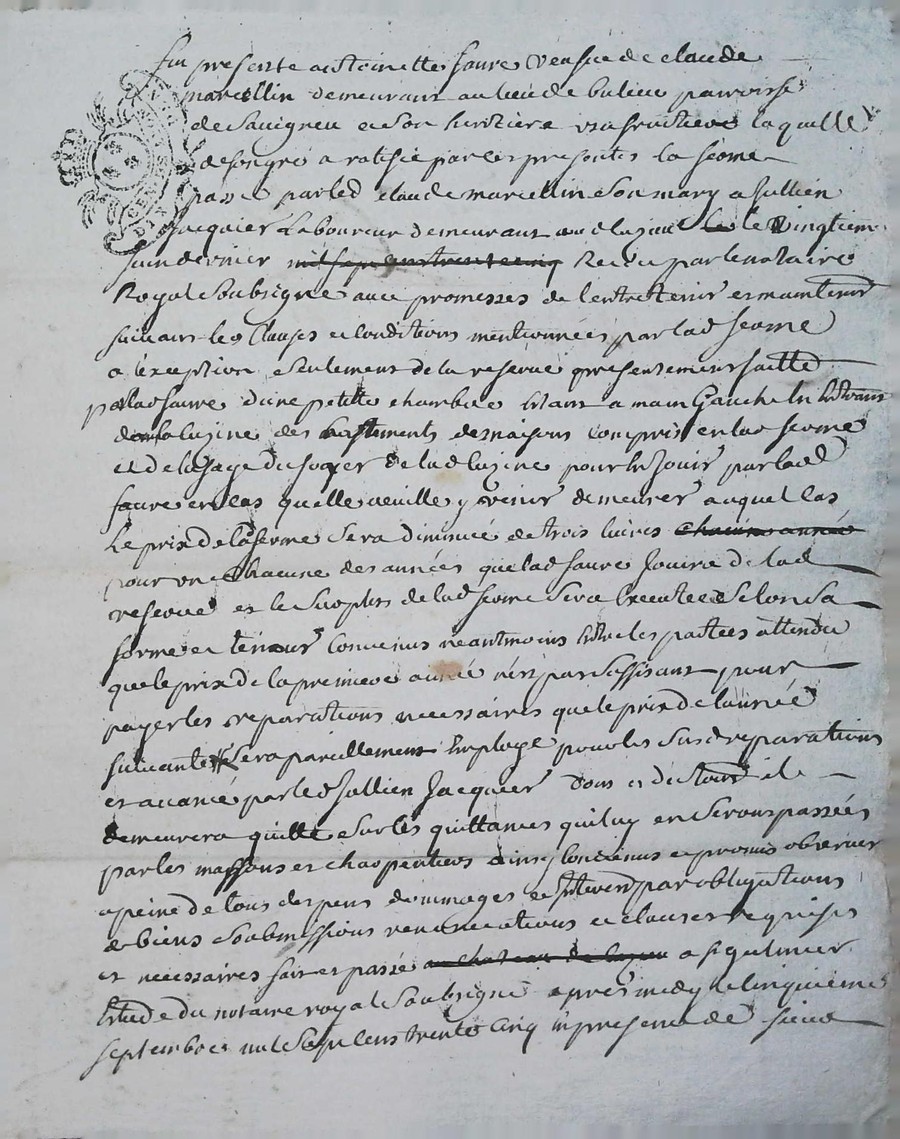 fut presente antoinette faure veufve de claude
marcellin demeurant au lieu de bulieu parroisse
de Savigneu et son heritiere usufruitiere laquelle
de son gré a ratifié par ces presentes la ferme
passée par led claude marcellin son mary a Jullien
Jacquier Laboureur demeurant aud le le vingtieme
Juin dernier mil sept cens trente cinq Receu par le notaire
Royal Soubsigné avec promesses de l'entretenir et maintenir
suivant les Clauses et conditions mentionnées par lad ferme
a l'exception seulement de la reserve presentement faitte
par lad faure d'une petite chambre Etant a main Gauche En Entrant
dans la cuzine des bastiments de maisons compris en lad ferme
et de lusage du fouyer de lad cuzine pour En Jouir par lad
faure en cas quelle veuille y venir demeurer auquel cas
Le prix de la ferme Sera diminué de trois livres chacune année
pour une Chacune des années que lad faure Jouira de lad
reserve et le Surplus de lad ferme Sera executée Selon Sa
forme et teneur Convenus neantmoins Entre les parties attendu
que le prix de la premiere année n'est pas Suffisant pour
payer les reparations necessaires que le prix de l'année
suivante Sera pareillement Employé pour les Susd reparations
et avancé par led Jullien Jacquier dont et du tout il
demeurera quitte Sur les quittances qui luy en Seront passées
par les massons et charpentiers ainsy Convenus et promis observer
a peine de tous despens dommages et Interets par obligations
de biens Soubmissions renonciations et clauses requises
et necessaires fait et passé au chateau de a
Etude du notaire royal Soubsigné apres midy le cinquieme
septembre mil Sept cens trente cinq en presence de sieur